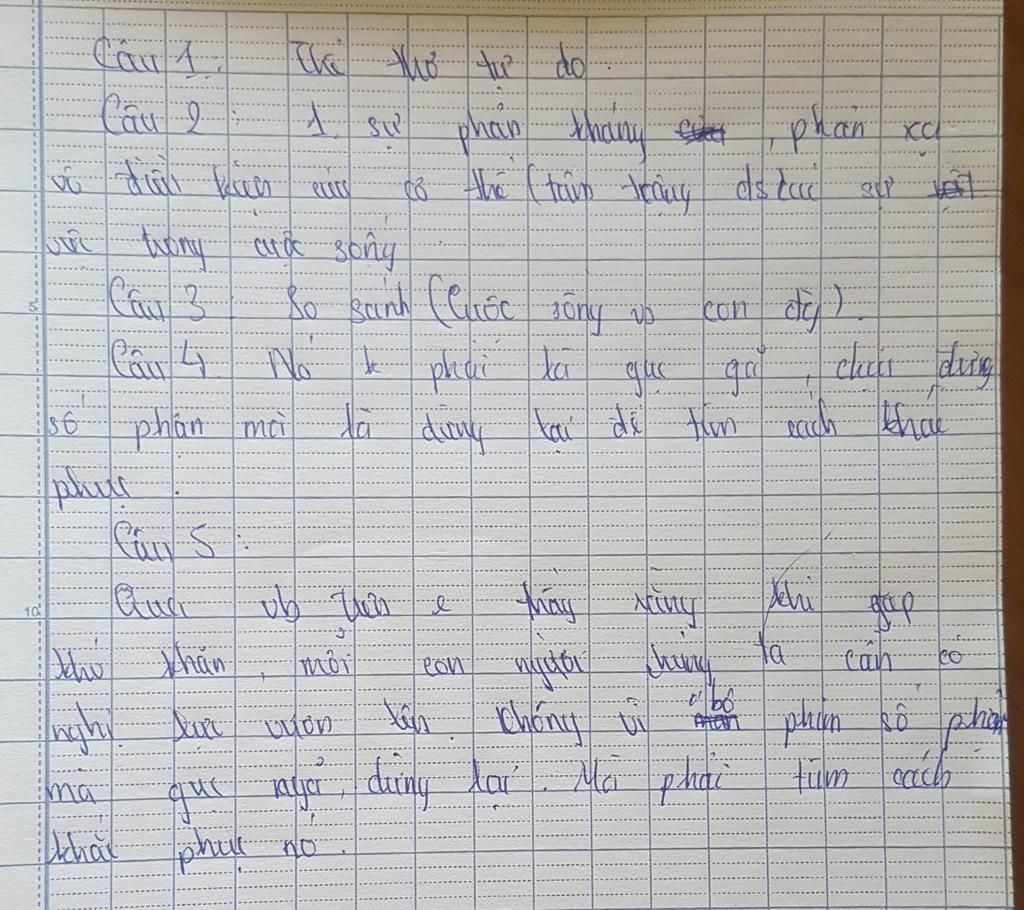 Câu 1. Thể thơ tự do.
Câu 2: 1, sự phản kháng, phản xạ
vô điều kiện của cơ thể (trân trọng
trong cuộc sống
Câu 3 So sánh (Cuộc sống vs con đg).
Câu 4 Nó k phải là gục gã, chịu đựng
số phận mà là dừng lại để tìm cách khắc
phục.
Câu 5:
Qua vb trên e thấy rằng khi gặp
khó khăn, mỗi con người chúng ta cần có
nghị lực vươn lên. Không vì phận số phận
mà gục ngã, dừng lại. Mà phải tìm cách
khắc phục nó.